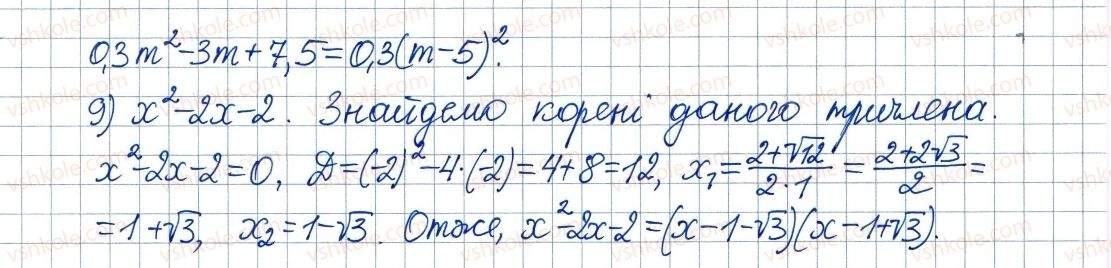 0,3m²-3m+7,5=0,3(m-5)².
9) x²-2x-2. Знайдемо корені даного тричлена.
x²-2x-2=0, Д=(-2)²-4·(-2)=4+8=12, x₁=(2+√12)/(2·1)=(2+2√3)/2=
=1+√3, x₂=1-√3. Отже, x²-2x-2=(x-1-√3)(x-1+√3).